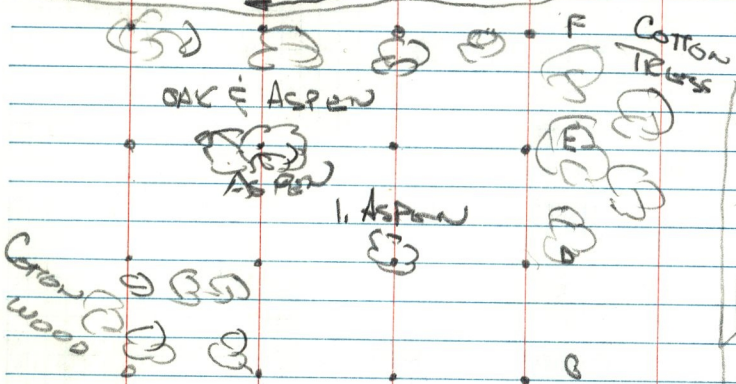 F COTTON
TREES
OAK & ASPEN
E
ASPEN
1. ASPEN
D
COTTON
WOOD